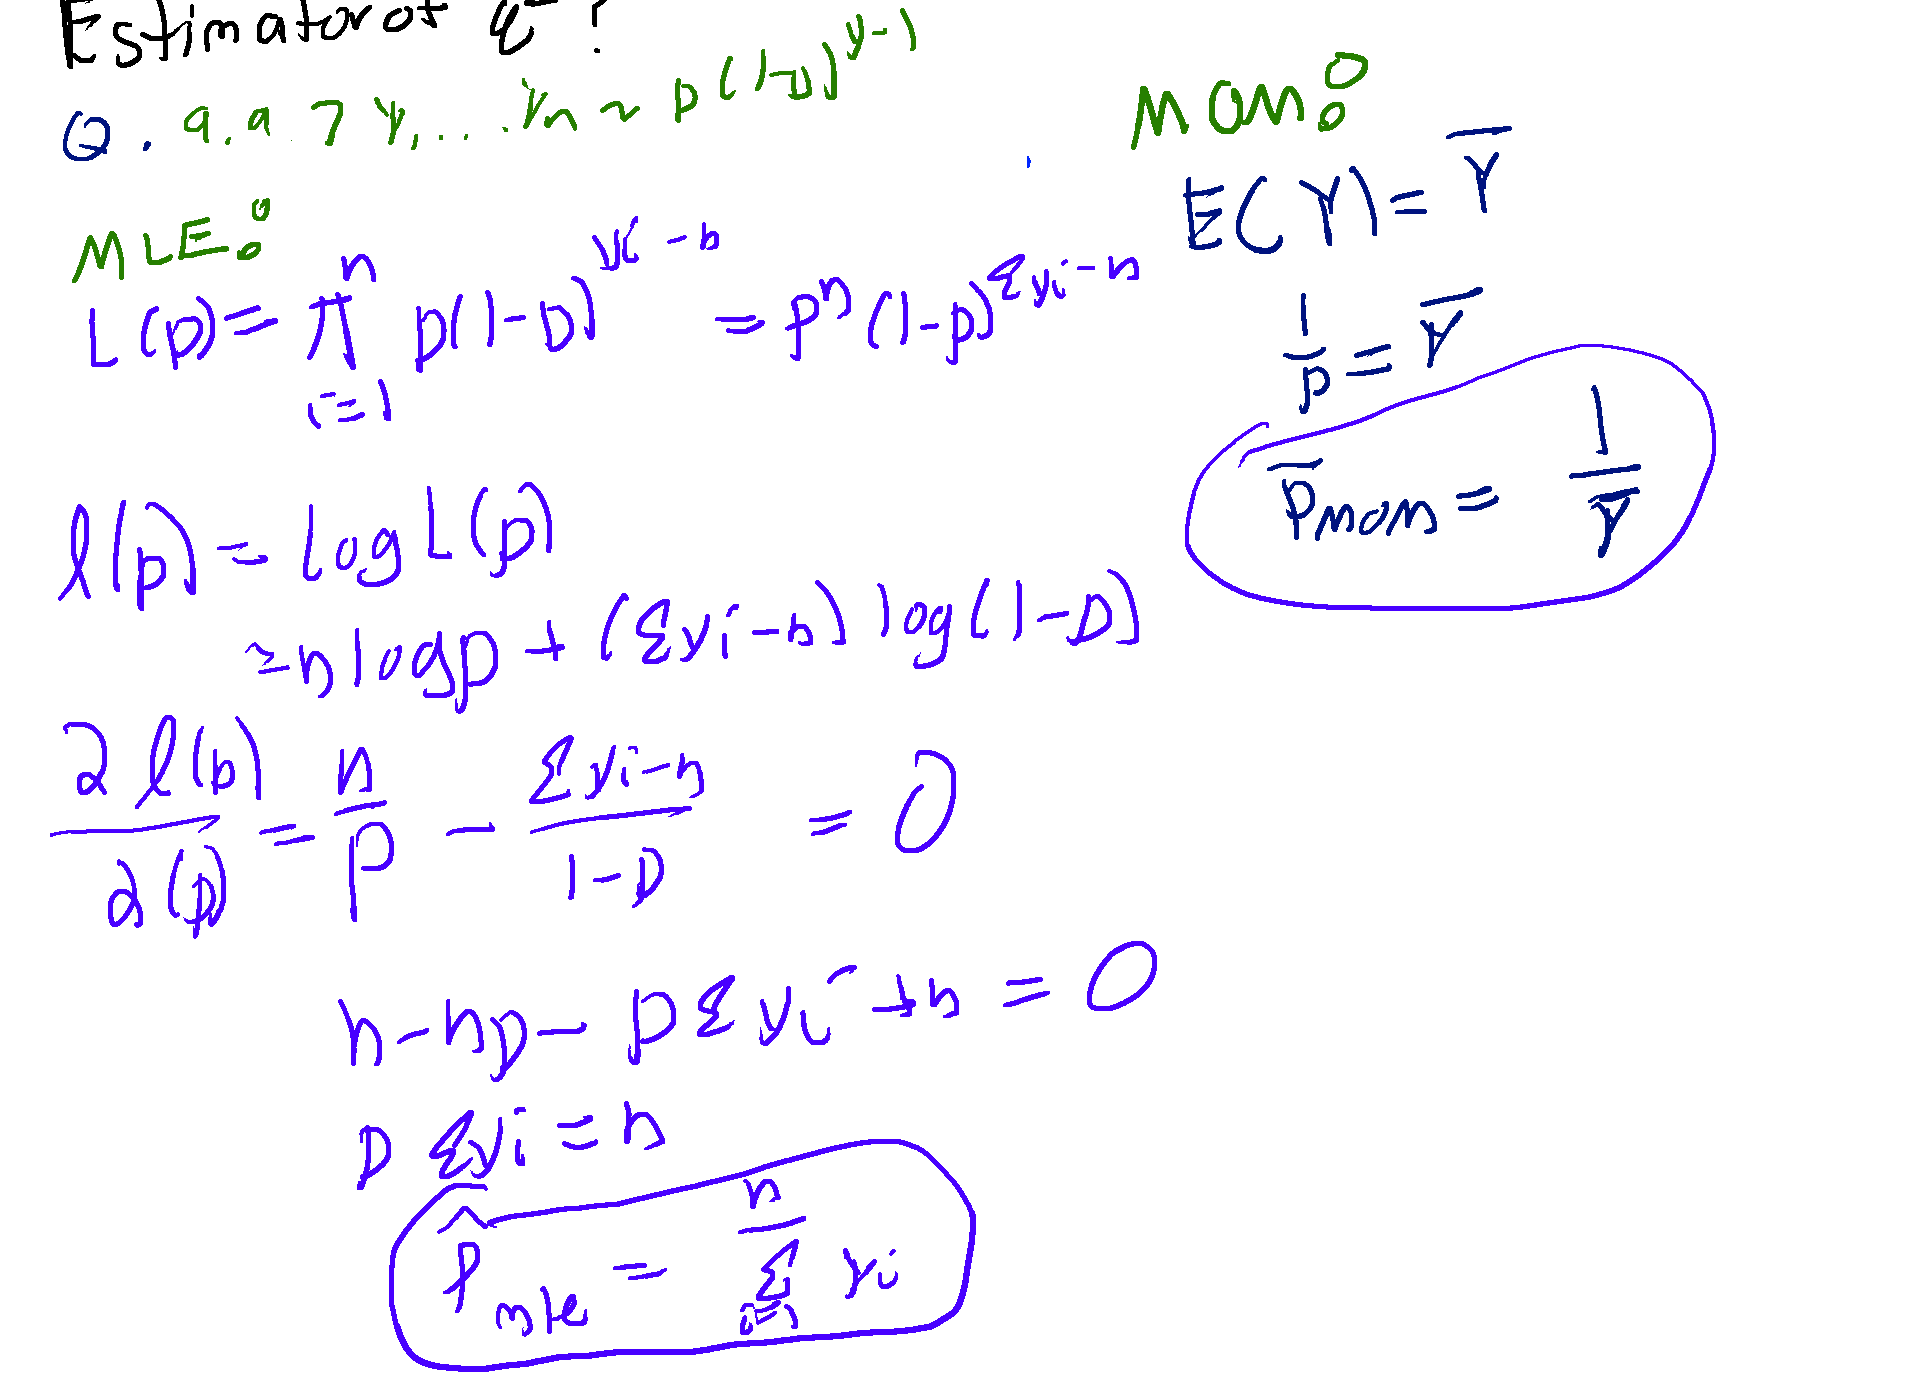 Estimator of ?
Q. 9.97 Y1, ... Yn ~ p(1-p)^{y-1}
MLE:
L(p) = π_{i=1}^{n} p(1-p)^{yi-b} = p^n (1-p)^{Σyi-n}
l(p) = log L(p)
= n log p + (Σyi-n) log(1-p)
∂l(p)/∂(p) = n/p - (Σyi-n)/(1-p) = 0
n-np-pΣyi+n = 0
p Σyi = n
p̂ mle = n/Σ_{i=1} yi
MOM:
E(Y) = Ȳ
1/p = Ȳ
p̄ MOM = 1/Ȳ